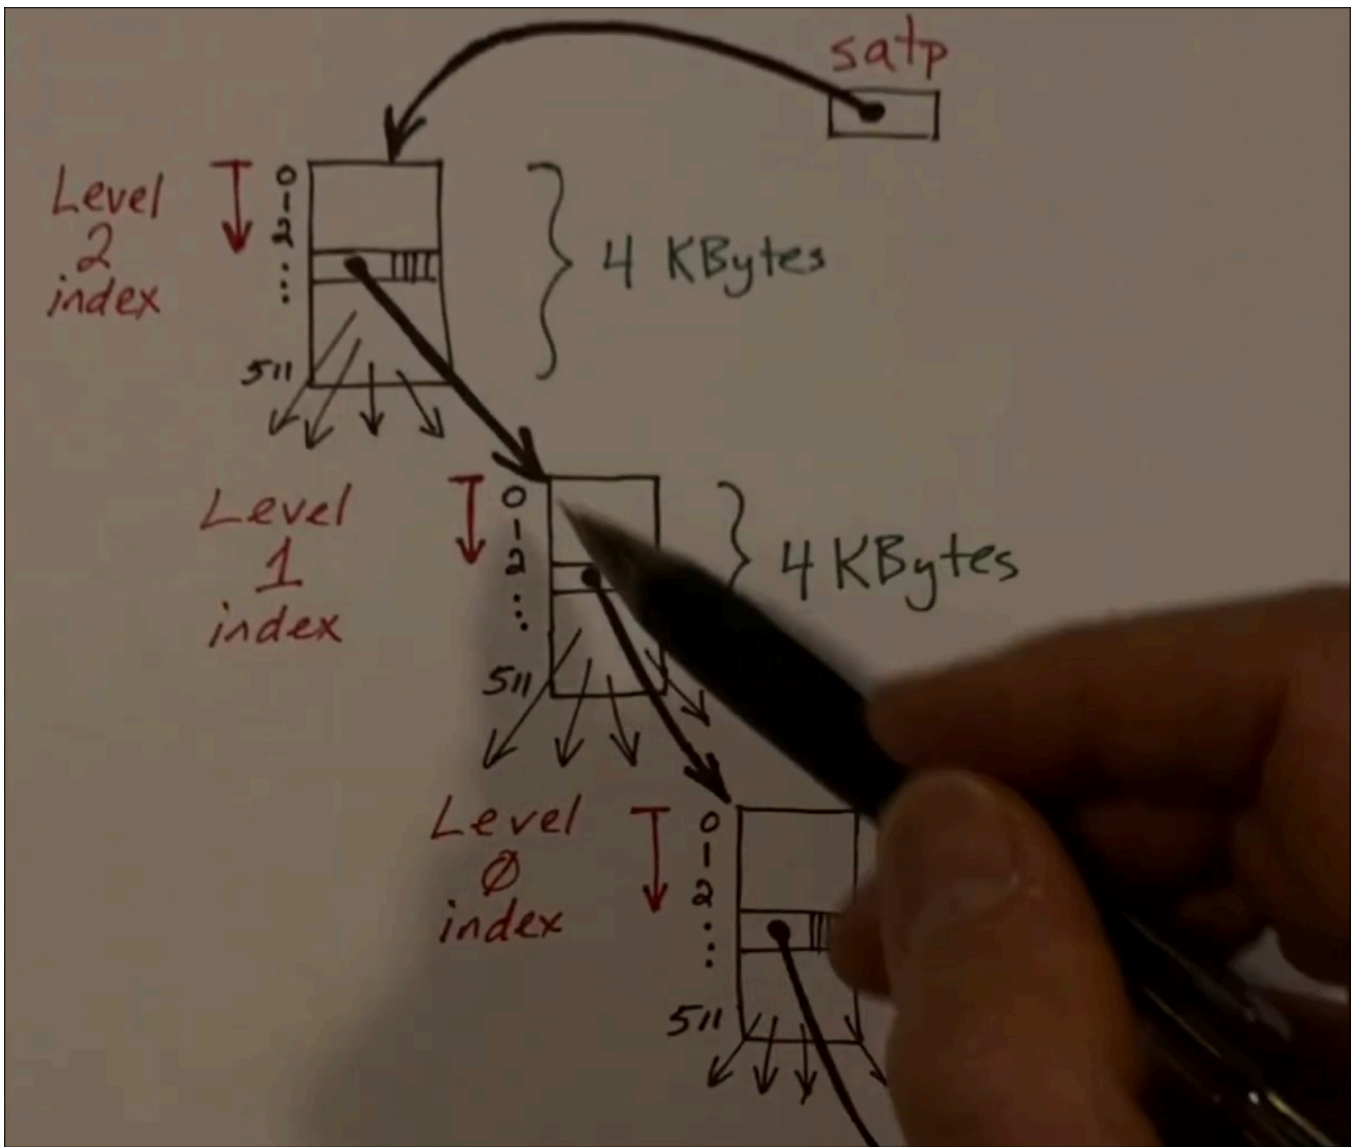 satp
Level
2
index
0
1
2
⋮
511
4 KBytes
Level
1
index
0
1
2
⋮
511
4 KBytes
Level
Ø
index
0
1
2
⋮
511